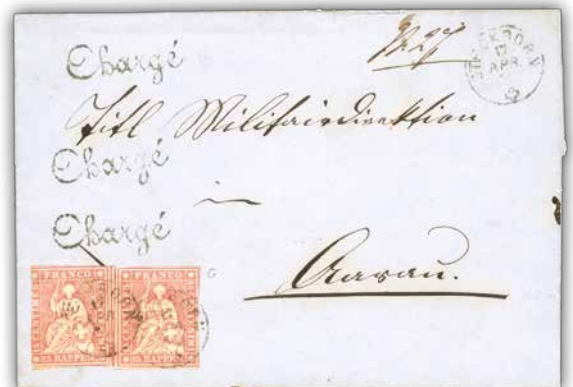 Chargé
STECKBORN
17
APR
Titl Militairdirektion
Chargé
in
Chargé
Aarau.
FRANCO FRANCO
15 RAPPEN 15 RAPPEN